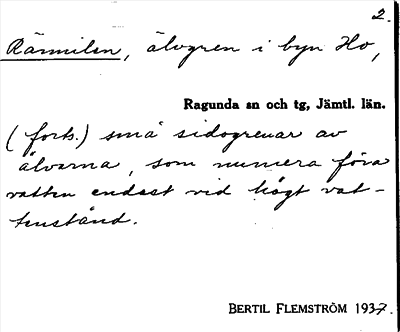 2.
Rännilen, älvgren i byn Ho,
Ragunda sn och tg, Jämtl. län.
(forts.) små sidogrenar av
älvarna, som numera föra
vatten endast vid högt vat-
tenstånd.
BERTIL FLEMSTRÖM 1937.